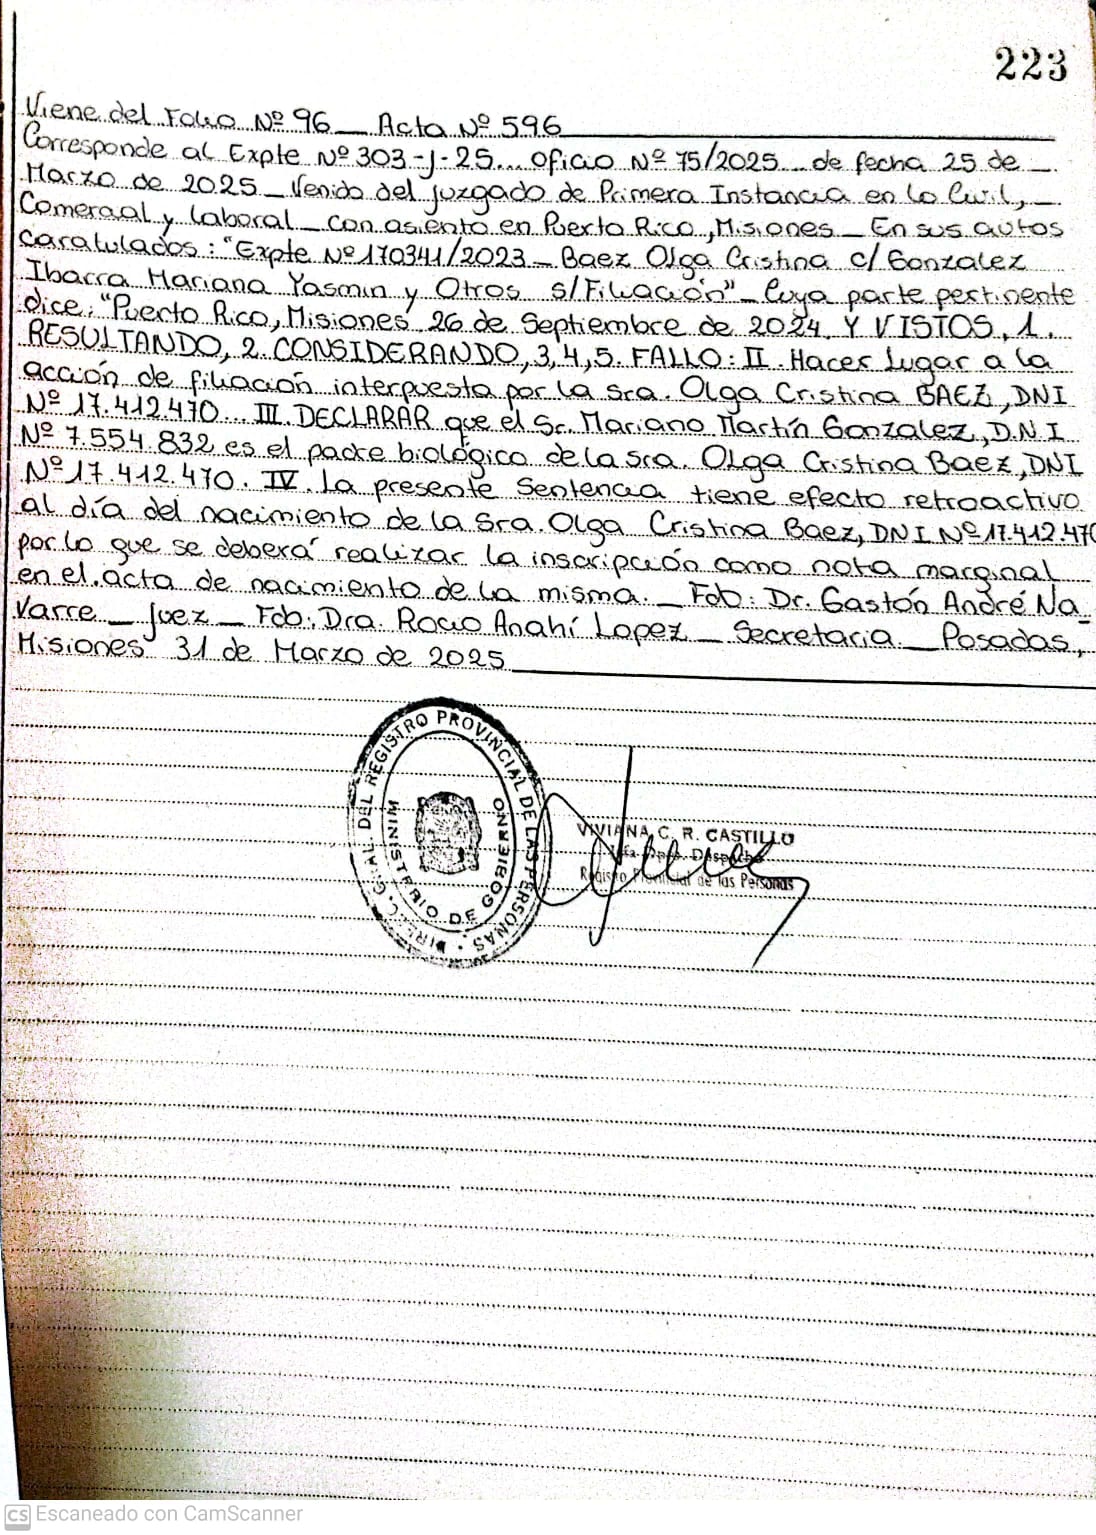 223
Viene del Folio Nº 96 _ Acta Nº 596
Corresponde al Expte Nº 303-J-25... Oficio Nº 75/2025... de fecha 25 de _
Marzo de 2025 _ Venido del Juzgado de Primera Instancia en lo Civil, _
Comercial y Laboral _ con asiento en Puerto Rico, Misiones _ En sus autos
caratulados: "Expte Nº 170341/2023 _ Baez Olga Cristina c/ Gonzalez
Ibarra Mariana Yasmin y Otros s/Filiación" _ Cuya parte pertinente
dice: "Puerto Rico, Misiones 26 de Septiembre de 2024. Y VISTOS, 1.
RESULTANDO, 2. CONSIDERANDO, 3, 4, 5. FALLO: II. Hacer Lugar a la
acción de filiación interpuesta por la Sra. Olga Cristina BAEZ, DNI
Nº 17.412.470... III. DECLARAR que el Sr. Mariano Martín Gonzalez, D.N.I
Nº 7.554.832 es el padre biológico de la Sra. Olga Cristina Baez, DNI
Nº 17.412.470. IV. La presente Sentencia tiene efecto retroactivo
al día del nacimiento de la Sra. Olga Cristina Baez, DNI Nº 17.412.470
por lo que se deberá realizar la inscripción como nota marginal
en el acta de nacimiento de la misma. _ Fdo: Dr. Gastón André Na-
varre _ Juez _ Fdo: Dra. Rocio Anahí Lopez _ Secretaria. _ Posadas,
Misiones 31 de Marzo de 2025
DIREC. GRAL. DEL REGISTRO PROVINCIAL DE LAS PERSONAS
MINISTERIO DE GOBIERNO
VIVIANA C. R. CASTILLO
Dpto. Despacho
Registro Provincial de las Personas
CS Escaneado con CamScanner